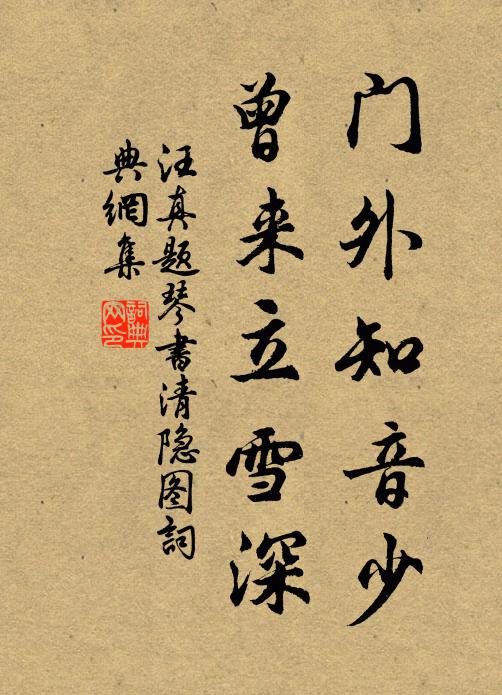 门外知音少
曾来立雪深
汪真题琴书清隐图詞
典網集
詞典
网印